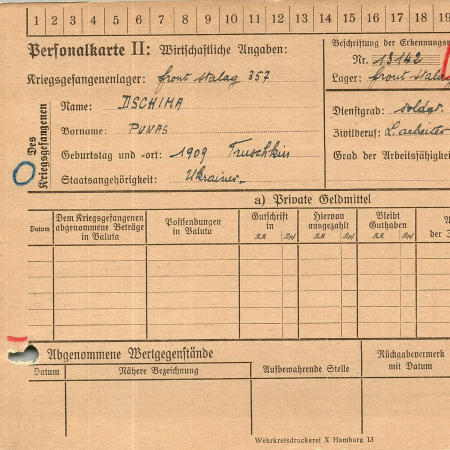 1 2 3 4 5 6 7 8 9 10 11 12 13 14 15 16 17 18 19
Personalkarte II: Wirtschaftliche Angaben:
Beschriftung der Erkennungs
Nr. 13142
Kriegsgefangenenlager: front stalag 357
Lager: front stalag
Des Kriegsgefangenen
Name: DSCHIMA
Vorname: PUNAS
Dienstgrad: soldat.
Geburtstag und -ort: 1909 Truschkin
Zivilberuf: L. arbeiter
Staatsangehörigkeit: Ukrainer
Grad der Arbeitsfähigkei
a) Private Geldmittel
Datum
Dem Kriegsgefangenen abgenommene Beträge in Valuta
Postsendungen in Valuta
Gutschrift in
RM Rpf
Hiervon ausgezahlt
RM Rpf
Bleibt Guthaben
RM Rpf
der
Abgenommene Wertgegenstände
Rückgabevermerk mit Datum
Datum
Nähere Bezeichnung
Aufbewahrende Stelle
Wehrkreisdruckerei X Hamburg 13